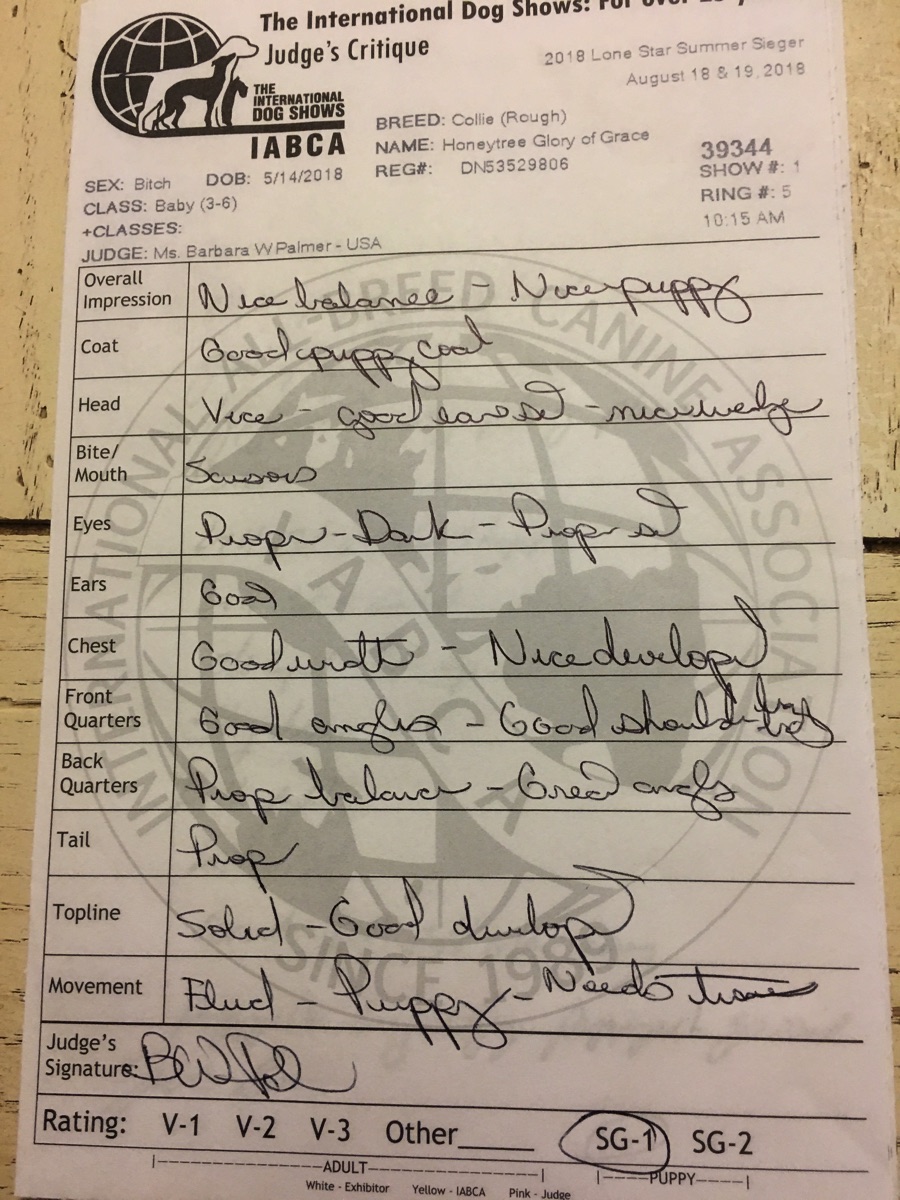 The International Dog Shows: For over
Judge's Critique
2018 Lone Star Summer Sieger
August 18 & 19, 2018
THE
INTERNATIONAL
DOG SHOWS
IABCA
BREED: Collie (Rough)
NAME: Honeytree Glory of Grace
REG#: DN53529806
39344
SHOW #: 1
RING #: 5
10:15 AM
SEX: Bitch DOB: 5/14/2018
CLASS: Baby (3-6)
+CLASSES:
JUDGE: Ms. Barbara W Palmer - USA
Overall Impression Nice balance - Nice puppy
Coat Good puppy coat
Head Nice - good ear set - nice wedge
Bite/ Mouth Scissors
Eyes Proper - Dark - Proper set
Ears Good
Chest Good width - Nice develop
Front Quarters Good angles - Good shoulder
Back Quarters Prop balance - Great angles
Tail Prop
Topline Solid - Good develop
Movement Fluid - Puppy - Needs time
Judge's Signature:
Rating: V-1 V-2 V-3 Other____ SG-1 SG-2
ADULT
PUPPY
White - Exhibitor Yellow - IABCA Pink - Judge
INTERNATIONAL ALL-BREED CANINE ASSOCIATION
IABCA
SINCE 1989